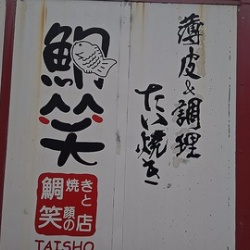 薄皮&調理
たい焼き
鯛笑
鯛焼きと
笑顔の店
TAISHO